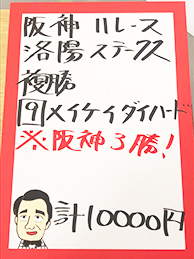 阪神 11レース
洛陽ステークス
複勝
9メイケイダイハード
※阪神3勝!
計10000円